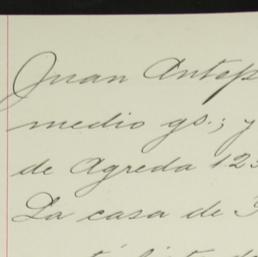 Juan Antop
medio gs.; y
de Agreda 123
La casa de